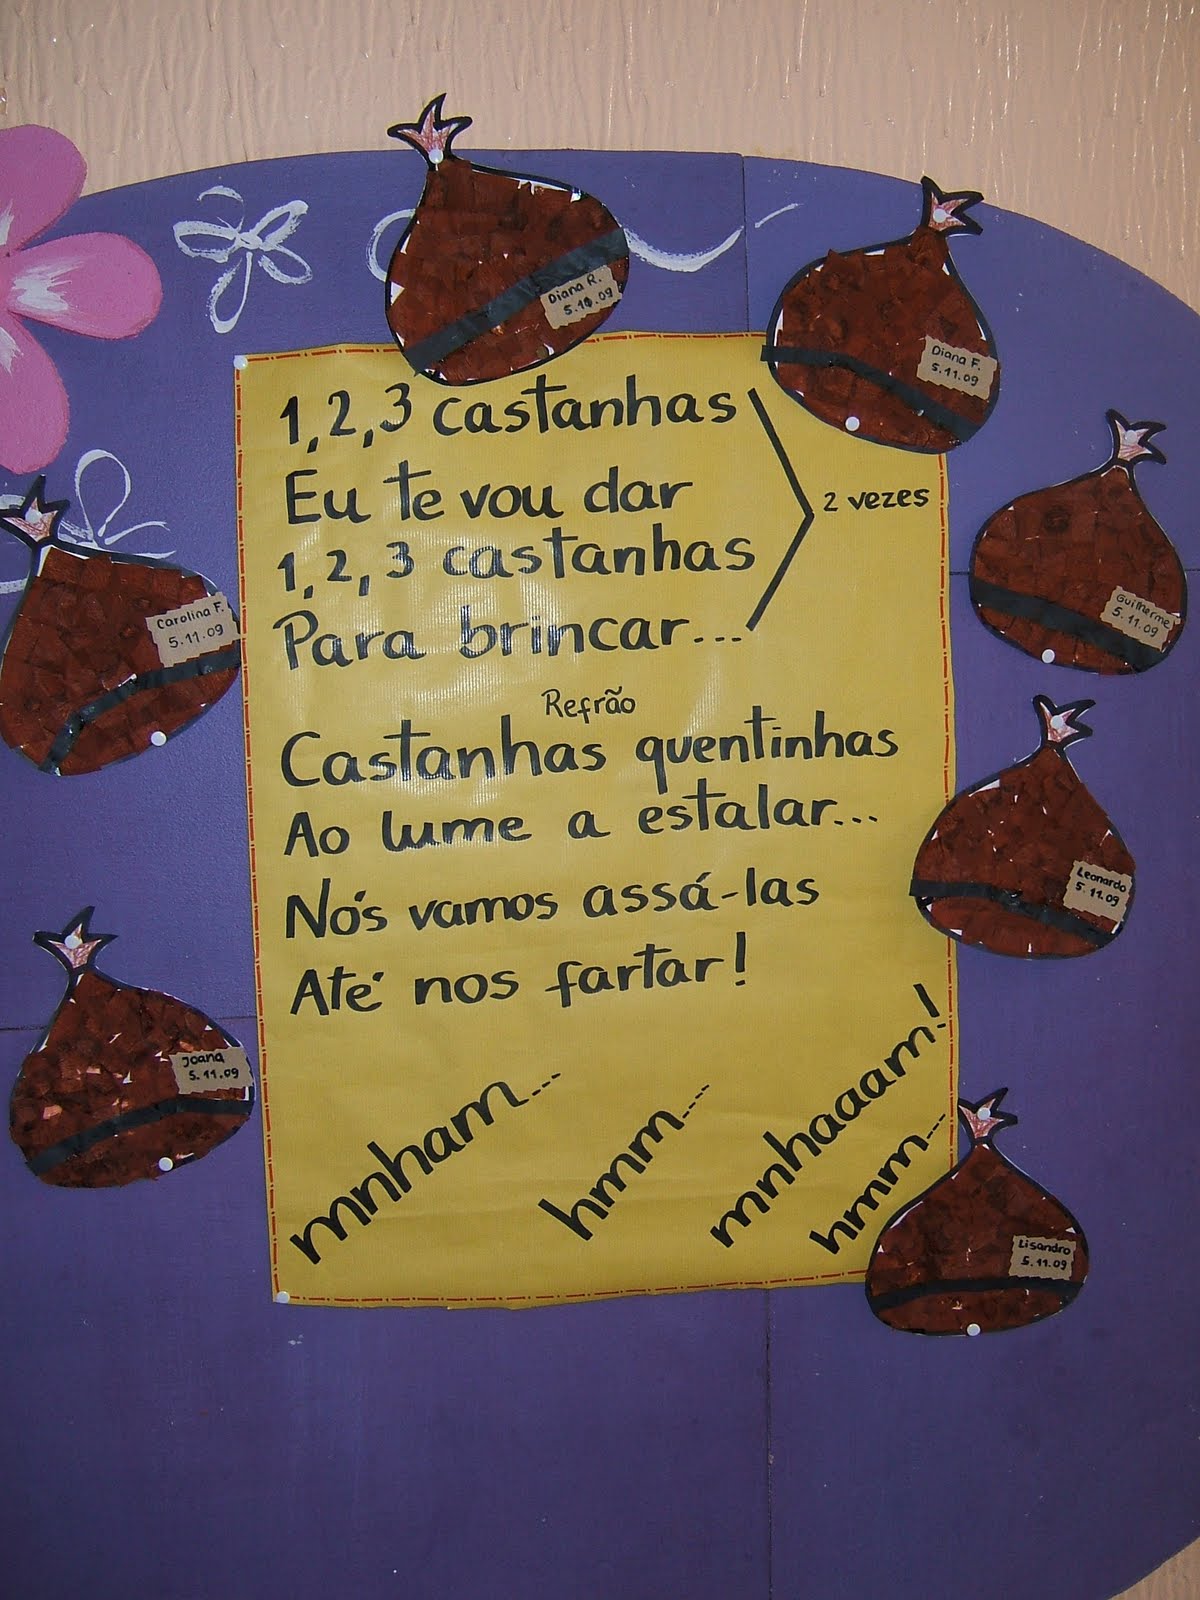 Diana R.
5.11.09
Diana F.
5.11.09
1, 2, 3 castanhas
Eu te vou dar
1, 2, 3 castanhas
Para brincar...
2 vezes
Refrão
Castanhas quentinhas
Ao lume a estalar...
Nós vamos assá-las
Até nos fartar!
mnham...
hmm....
mnhaaam!
hmm...
Carolina F.
5.11.09
Guilherme
5.11.09
Leonardo
5.11.09
Joana
5.11.09
Lisandro
5.11.09